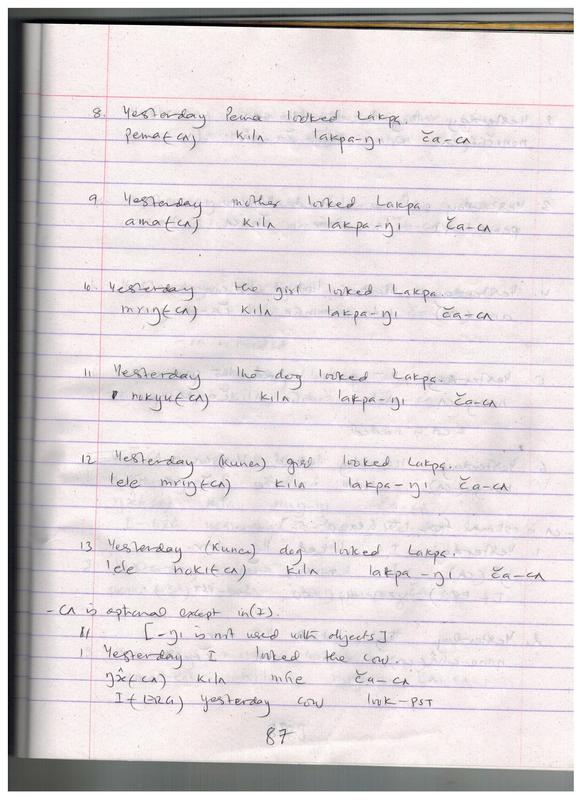 8. Yesterday Pema looked Lakpa.
pema(-cʌ) kilʌ lakpa-ŋi ča-cʌ
9. Yesterday mother looked Lakpa
ama(-cʌ) kilʌ lakpa-ŋi ča-cʌ
10. Yesterday the girl looked Lakpa.
mriŋ(-cʌ) kilʌ lakpa-ŋi ča-cʌ
11 Yesterday the dog looked Lakpa.
nokyu(-cʌ) kilʌ lakpa-ŋi ča-cʌ
12 Yesterday (kunai) girl looked Lakpa.
lele mriŋ(-cʌ) kilʌ lakpa-ŋi ča-cʌ
13 Yesterday (kunai) dog looked Lakpa.
lele noki(-cʌ) kilʌ lakpa-ŋi ča-cʌ
-cʌ is optional except in (7).
II [-ŋi is not used with objects]
1. Yesterday I looked the cow.
kilʌ ča-cʌ
I(-ERG) yesterday cow look-PST
87